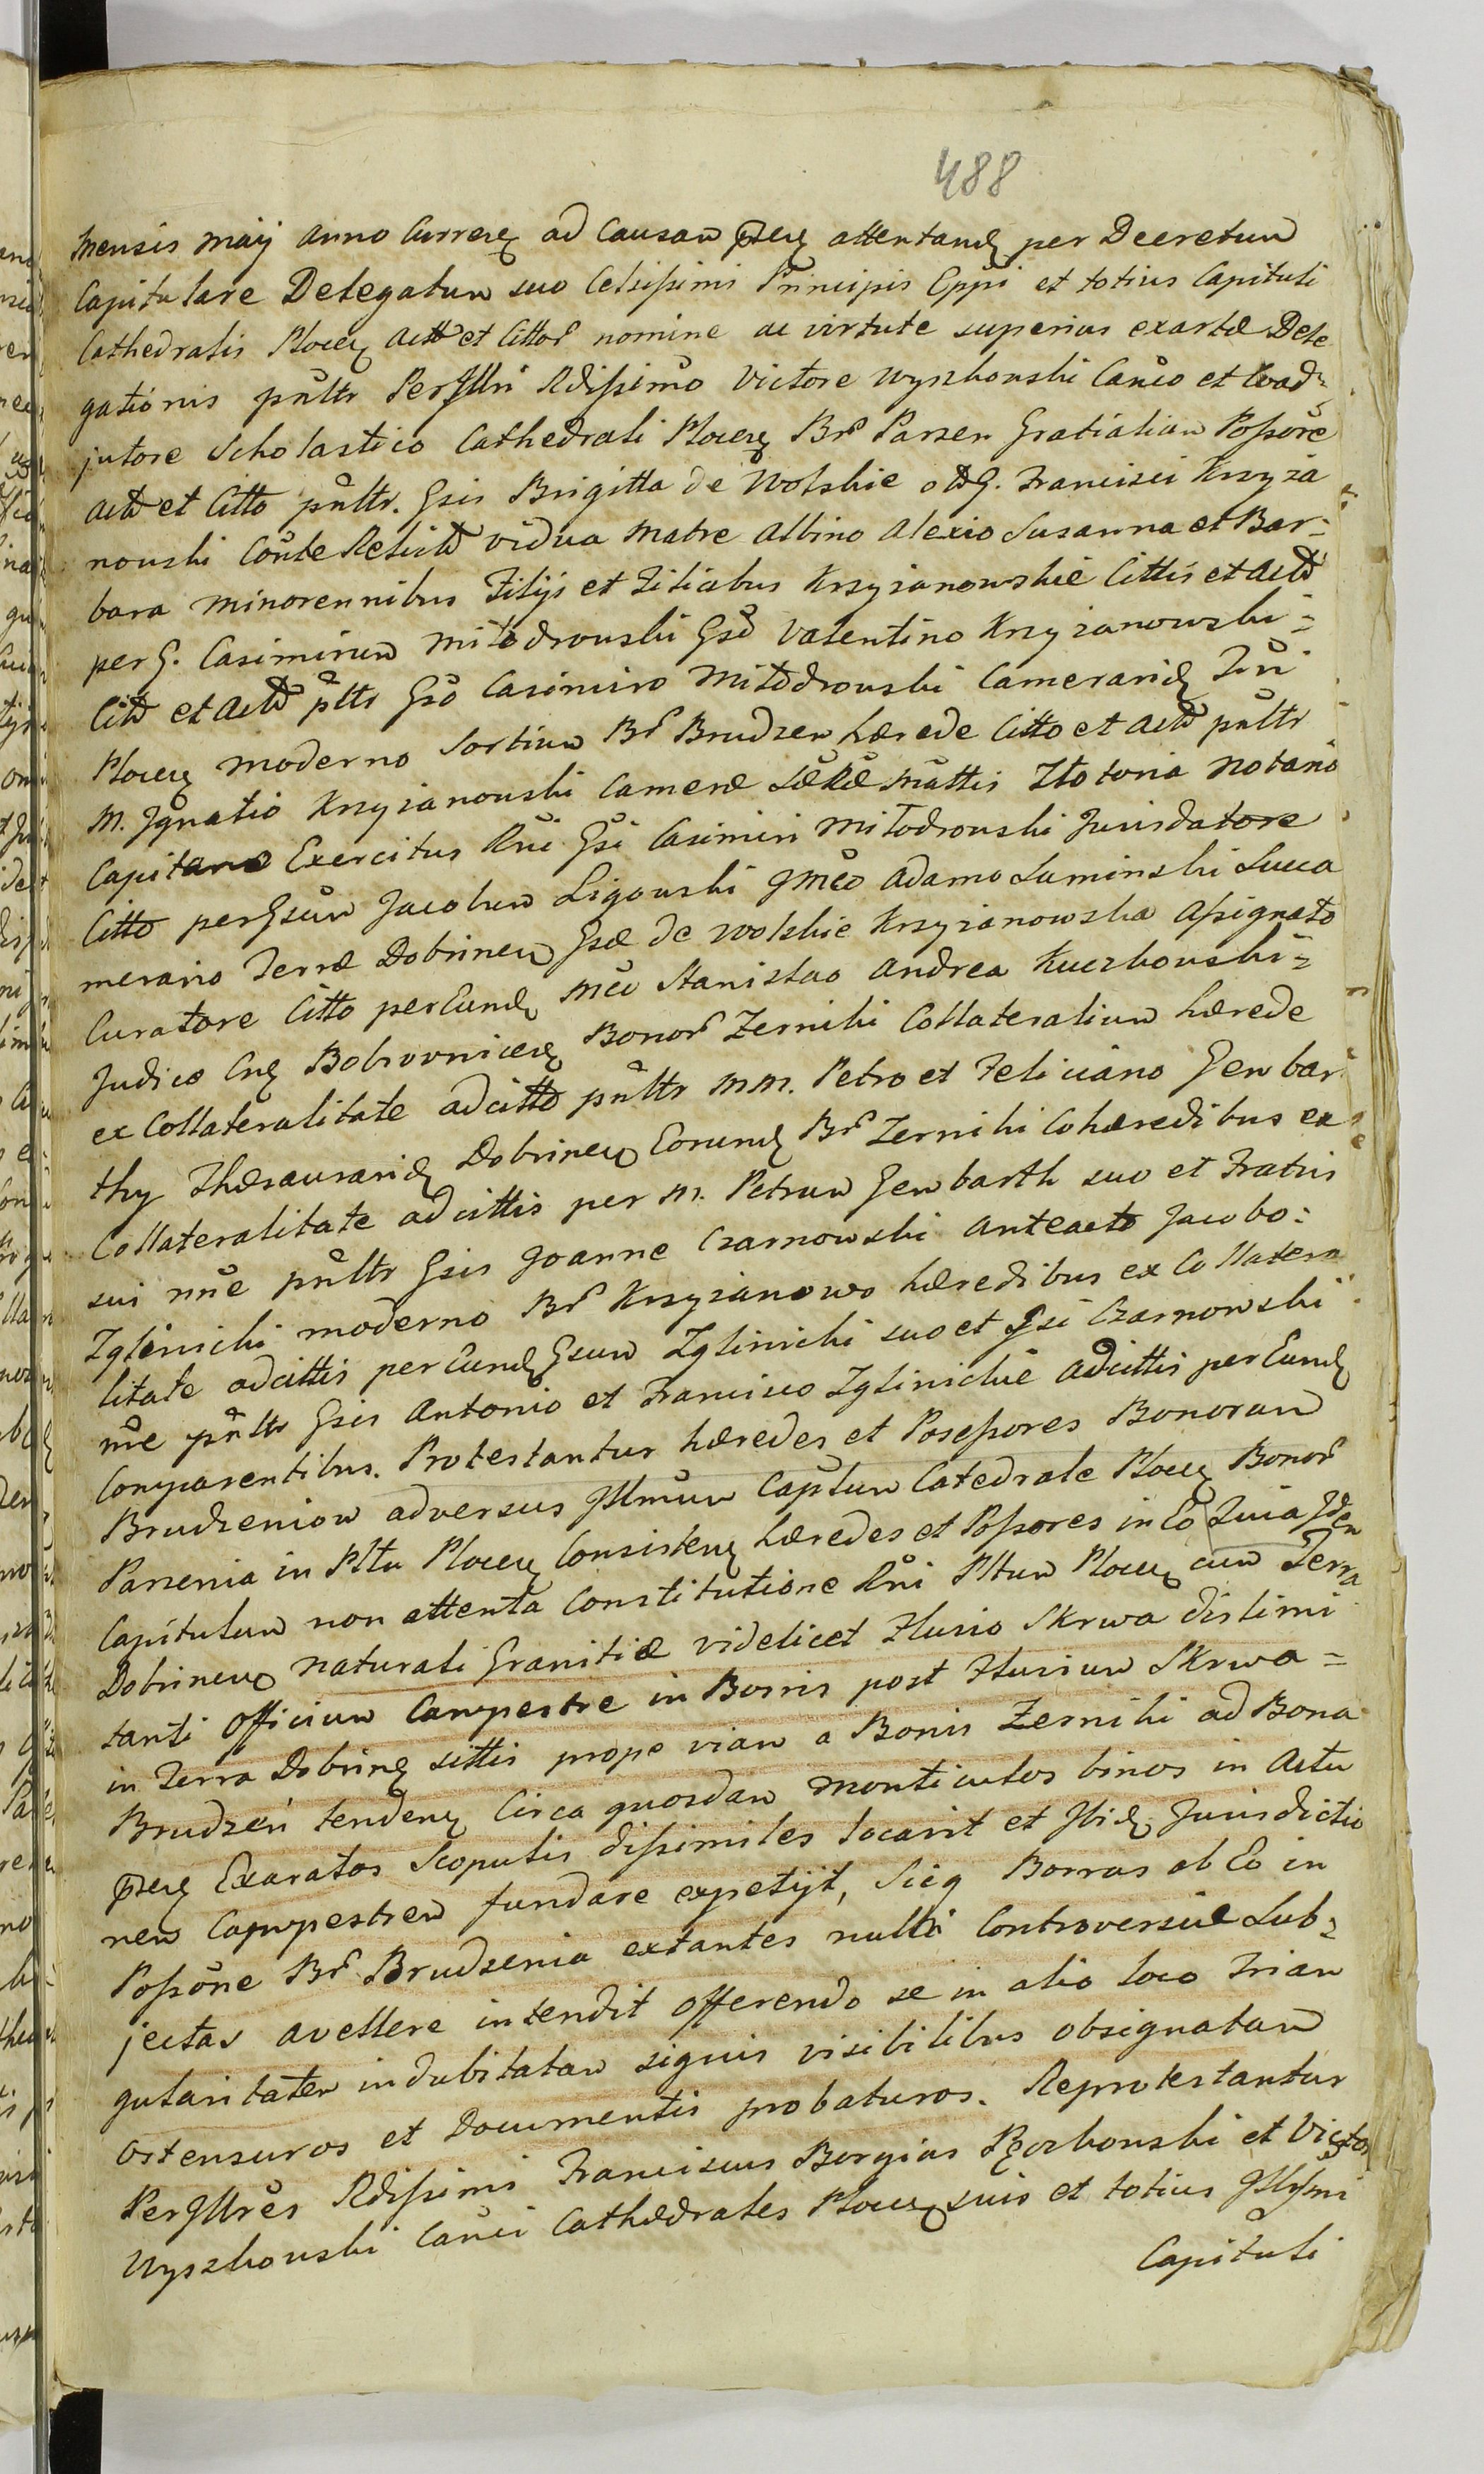 488
Mensis Maij Anno Currenꝫ ad Causam pntenꝫ attentandꝫ per Decretum
Capitulare Delegatum suo Celsissimi Principis Eppi et totius Capituli
Cathedralis Plocenꝫ Actt et Cittor nomine ac virtute superius exartæ Dele
gationis pnltr PerJllri Rdissimo Victore Wyszkowski Canco et Coad=
jutore Scholastico Cathedrali Plocenꝫ Br Parzen Gratialium Possore
Actt et Citto pnltr. Gsis Brigitta de Wolskie oltG. Francisci Krzyża
nowski Conte Relictt vidua Matre Albino Alexio Susanna et Bar=
bara minorennibus Filijs et Filiabus Krzyżanowskie Cittis et Actt
per G. Casimirum Miłodrowski Gso Valentino Krzyżanowski=
Citt et Actt pltr Gso Casimiro Miłodrowski Camerarid Tri
Plocenꝫ moderno Sortium Br Brudzen hærede Citto et Actt pnltr
M. Jgnatio Krzyżanowski Cameræ Sæ Ræ Mattis Złotoria Notario
Capitaneo Exercitus Rni Gsi Casimiri Miłodrowski Jurisdatore
Citto per Gsum Jacobum Ligowski Gmco Adamo Łuminski Succa
merario Terræ Dobrinen Gsæ de Wolskie Krzyżanowska Assignato
Curatore Citto per Eundꝫ Mco Stanislao Andrea Kuczkowski=
Judice Cnꝫ Bobrovnicenꝫ Bonor Żerniki Collateralium hærede
ex Collateralitate adcitto pnltr MM. Petro et Feliciano Gembar
thy Thæsaurarid Dobrinen Eorundꝫ Br Żerniki Cohæredibus ex
Collateralitate adcittis per M. Petrum Gembarth suo et Fratris
sui nne pnltr Gsis Joanne Czarnowski anteacto Jacobo=
Zglinicki moderno Br Krzyżanowo hæredibus ex Collatera
litate adcittis per Eundꝫ Gsum Zglinicki suo et Gsi Czarnowski
nne pnltr Gsis Antonio et Francisco Zglinickie adcittis per Eundꝫ
Comparentibus. Protestantur hæredes et Possessores Bonorum
Brudzeniow adversus Jllmum Capłum Catedrale Plocenꝫ Bonor
Parzenia in Pltu Plocenꝫ Consistenꝫ hæredes et Possores in Eo Quia Jdem
Capitulum non attenta Constitutione Rni Pltum Plocenꝫ cum Terra
Dobrinen naturali Granitiæ videlicet Fluvio Skrwa distimi
tanti officium Campestre in Borris post Fluvium Skrwa=
in Terra Dobrinꝫ sittis prope viam a Bonis Żerniki ad Bona
Brudzeń tendenꝫ Circa quosdam monticulos binos in Actu
pntenꝫ Exaratos Scopulis dissimiles locavit et Jbidꝫ Jurisdictio
nem Campestrem fundare expetijt, Sicq Borras ab Eo in
Possone Br Brudzenia extantes nulli Controversiæ Sub=
jectas avellere intendit offerendo se in alio loco Trian
gularitatem indubitatam signis visibilibus obsignatam
ostensuros et Documentis probaturos. Reprotestantur
PerJllres Rdissimi Franciscus Borgias Rzeszkowski et Victor
Wyszkowski Canci Cathædrales Plocenꝫ suis et totius Jllssmi
Capituli